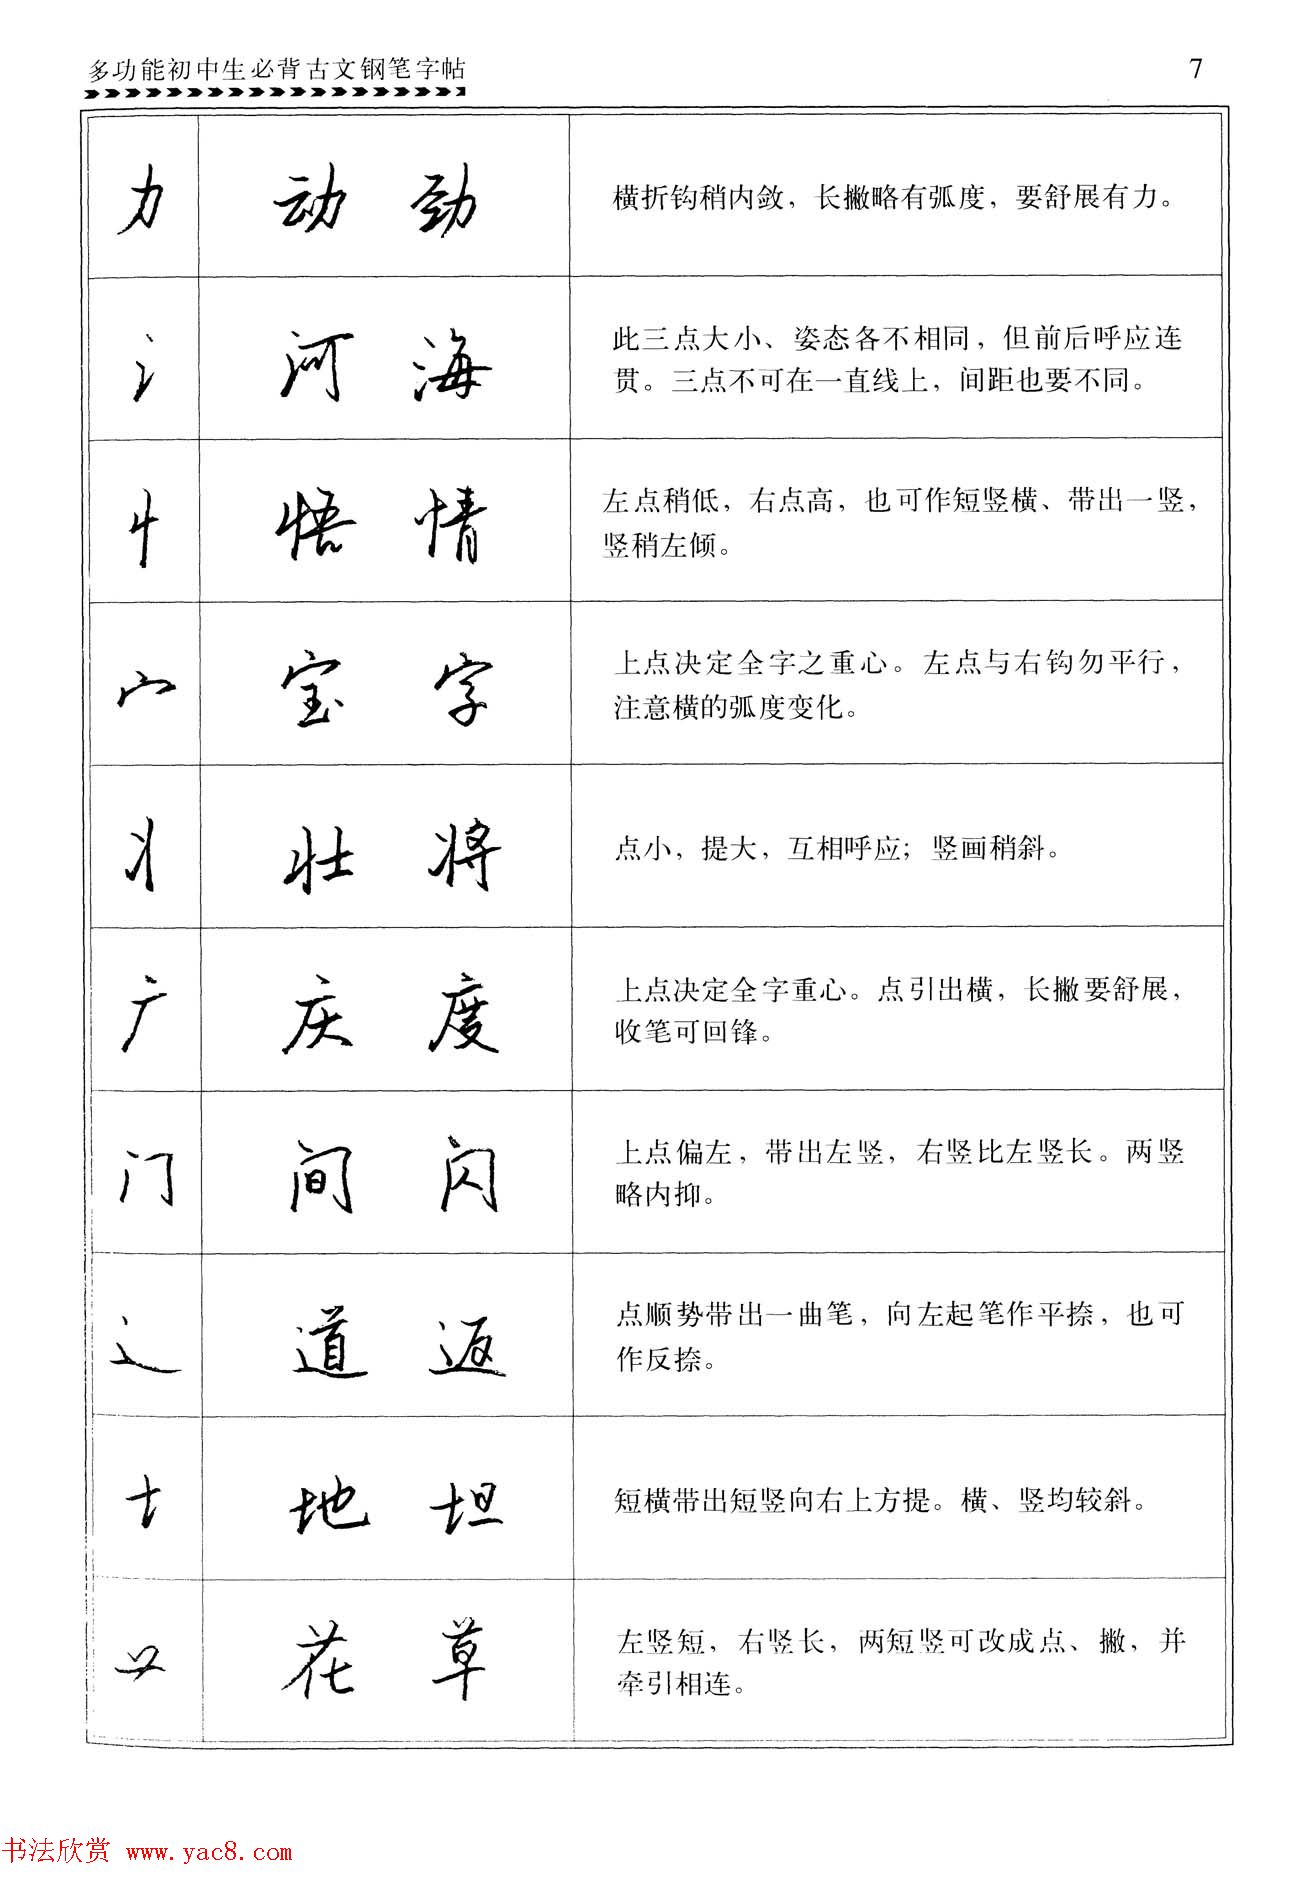 多功能初中生必背古文钢笔字帖
7
力 动 劲 横折钩稍内敛，长撇略有弧度，要舒展有力。
氵 河 海 此三点大小、姿态各不相同，但前后呼应连
贯。三点不可在一直线上，间距也要不同。
忄 悟 情 左点稍低，右点高，也可作短竖横、带出一竖，
竖稍左倾。
宀 宝 字 上点决定全字之重心。左点与右钩勿平行，
注意横的弧度变化。
丬 壮 将 点小，提大，互相呼应；竖画稍斜。
广 庆 度 上点决定全字重心。点引出横，长撇要舒展，
收笔可回锋。
门 间 闪 上点偏左，带出左竖，右竖比左竖长。两竖
略内抑。
辶 道 返 点顺势带出一曲笔，向左起笔作平捺，也可
作反捺。
土 地 坦 短横带出短竖向右上方提。横、竖均较斜。
艹 花 草 左竖短，右竖长，两短竖可改成点、撇，并
牵引相连。
书法欣赏 www.yac8.com